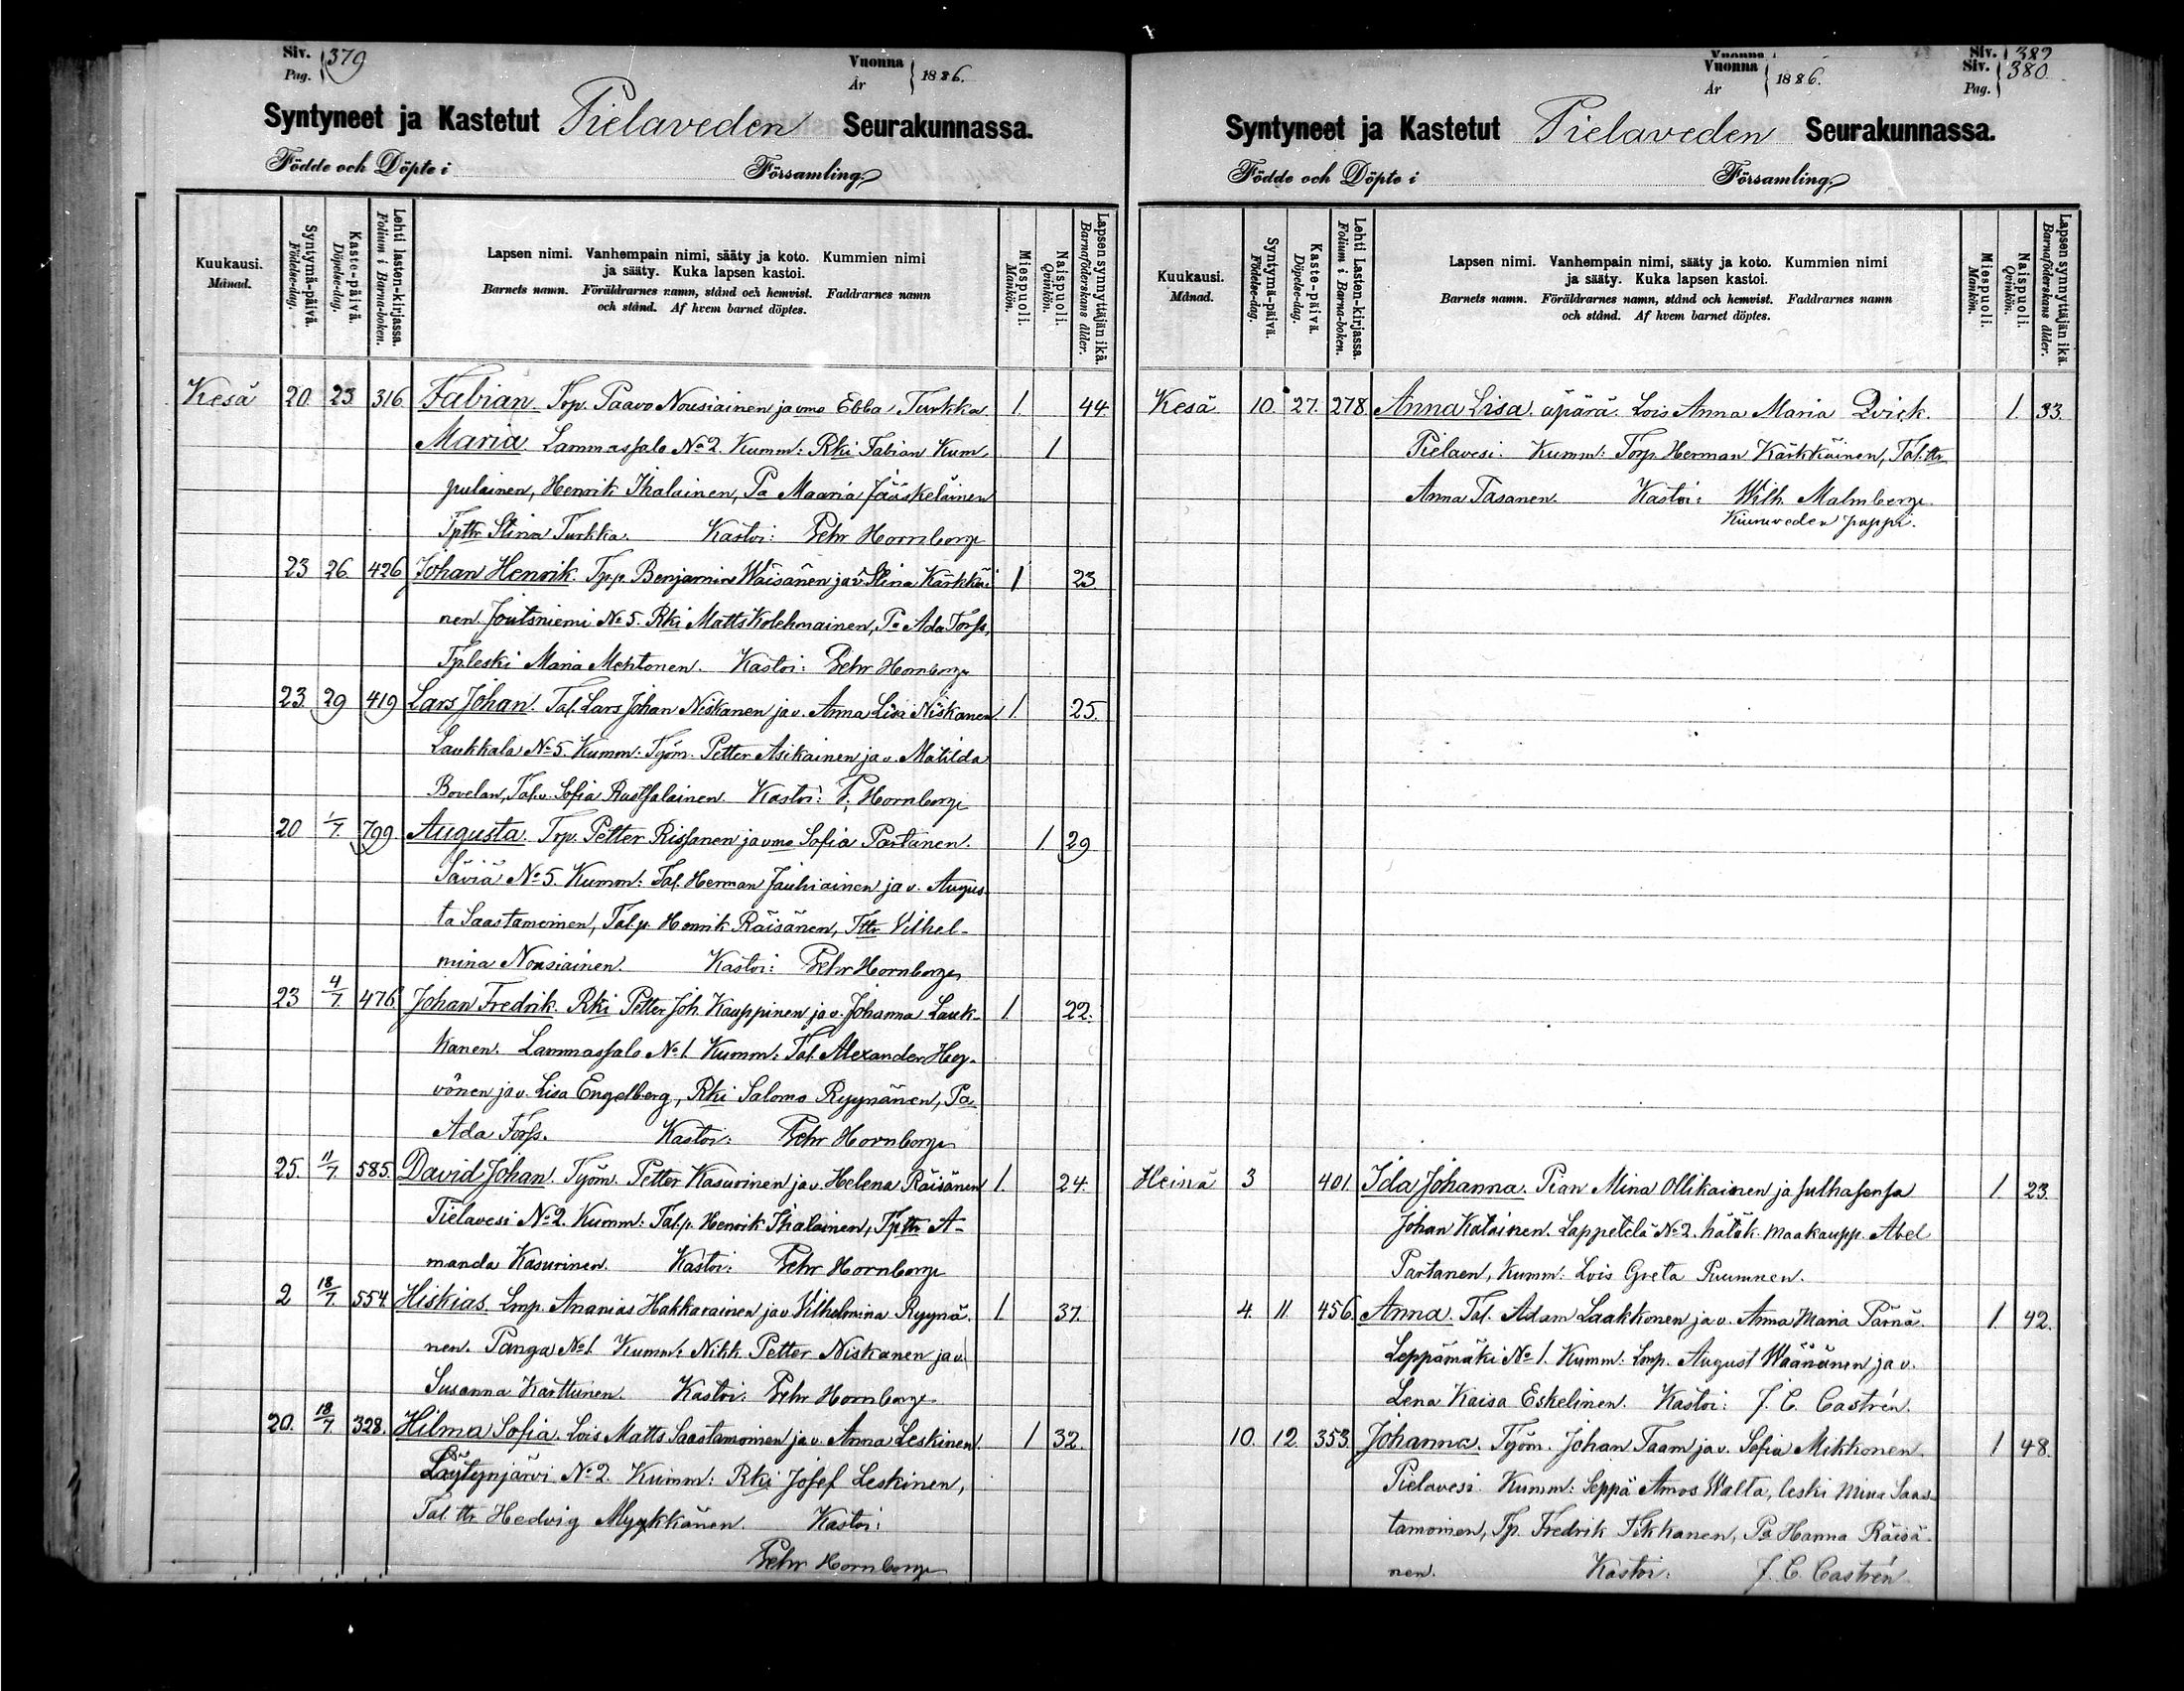 Siv. 379
Pag.
Vuonna 1886.
År
Syntyneet ja Kastetut Pielaveden Seurakunnassa.
Födde och Döpte i Församling.
Kuukausi. Månad.
Syntymä-päivä. Födelse-dag.
Kaste-päivä. Döpelse-dag.
Lehti lasten-kirjassa. Folium i Barna-boken.
Lapsen nimi. Vanhempain nimi, sääty ja koto. Kummien nimi
ja sääty. Kuka lapsen kastoi.
Barnets namn. Föräldrarnes namn, stånd och hemvist. Faddrarnes namn
och stånd. Af hvem barnet döptes.
Miespuoli. Mankön.
Naispuoli. Qvinkön.
Lapsen synnyttäjän ikä. Barnaföderskans ålder.
Kesä 20. 23 316 Fabian. Trp. Paavo Nousiainen ja vmo Ebba Turkka 1. 44
Maria. Lammassalo No 2. Kumm: Rki Fabian Kum 1
pulainen, Henrik Ihalainen, Pa Maaria Jääskeläinen
Tpttr Stina Turkka. Kastoi: Pehr Hornborg
23 26. 426 Johan Henrik. Tp.p. Benjamin Wäisänen ja v. Stina Kärkkäi 1 23.
nen. Joutsniemi No 5. Rki Matts Kolehmainen, Pa Ada Forss,
Tpleski Maria Mehtonen. Kastoi: Pehr Hornborg
23. 29 419 Lars Johan. Tal. Lars Johan Niskanen ja v. Anna Lisa Niskanen 1. 25.
Laukkala No 5. Kumm: Työm. Petter Asikainen ja v. Matilda
Bovelan, Tal.v. Sofia Ruotsalainen. Kastoi: P. Hornborg
20 1/7. 799. Augusta. Trp. Petter Rissanen ja vmo Sofia Partanen. 1. 29
Säviä No 5. Kumm: Tal. Herman Jauhiainen ja v. Augus-
ta Saastamoinen, Tal.p. Henrik Räisänen, Tttr Vilhel-
mina Nousiainen. Kastoi: Pehr Hornborg
23 4/7. 476. Johan Fredrik. Rki Petter Joh. Kauppinen ja v. Johanna Lauk- 1. 22.
kanen. Lammassalo No 1. Kumm: Tal. Alexander Hey-
vönen ja v. Lisa Engelberg, Rki Salomo Ryynänen, Pa
Ada Forss. Kastoi: Pehr Hornborg
25. 11/7. 585. David Johan. Työm. Petter Kasurinen ja v. Helena Räisänen 1. 24.
Pielavesi No 2. Kumm: Tal.p. Henrik Ihalainen, Tpttr A-
manda Kasurinen. Kastoi: Pehr Hornborg
2 18/7. 554. Hiskias. Lmp. Ananias Hakkarainen ja v. Vilhelmina Ryynä- 1. 37.
nen. Panga No 1. Kumm: Nikk. Petter Niskanen ja v.
Susanna Karttunen. Kastoi: Pehr Hornborg
20. 18/7. 328. Hilma Sofia. Lois Matts Saastamoinen ja v. Anna Leskinen. 1 32.
Löytynjärvi No 2. Kumm: Rki Josef Leskinen,
Tal. ttr Hedvig Myykkänen. Kastoi:
Pehr Hornborg
Vuonna Siv. 382
Siv. 380
Pag.
Vuonna 1886.
År
Syntyneet ja Kastetut Pielaveden Seurakunnassa.
Födde och Döpte i Församling.
Kuukausi. Månad.
Syntymä-päivä. Födelse-dag.
Kaste-päivä. Döpelse-dag.
Lehti Lasten-kirjassa. Folium i Barna-boken.
Lapsen nimi. Vanhempain nimi, sääty ja koto. Kummien nimi
ja sääty. Kuka lapsen kastoi.
Barnets namn. Föräldrarnes namn, stånd och hemvist. Faddrarnes namn
och stånd. Af hvem barnet döptes.
Miespuoli. Mankön.
Naispuoli. Qvinkön.
Lapsen synnyttäjän ikä. Barnaföderskans ålder.
Kesä 10. 27. 278. Anna Lisa. äpärä. Lois Anna Maria Qvick. 1. 33.
Pielavesi. Kumm: Torp. Herman Kärkkäinen, Tal.ttr
Anna Tasanen. Kastoi: Wilh. Malmberg.
Kiuruveden pappi.
Heinä 3 401. Ida Johanna. Pian Mina Ollikainen ja sulhasensa 1 23.
Johan Katainen. Lappetelä No 2. hätäk. Maakaupp. Abel
Partanen, Kumm: Lois Greta Puumnen.
4. 11 456. Anna. Tal. Adam Laakkonen ja v. Anna Maria Pärnä. 1. 42.
Leppämäki No 1. Kumm: Lmp. August Wäänänen ja v.
Lena Kaisa Eskelinen. Kastoi: J. C. Castrén.
10. 12. 353. Johanna. Työm. Johan Taam ja v. Sofia Mikkonen. 1 48.
Pielavesi. Kumm: Seppä Amos Walta, leski Mina Saas-
tamoinen, Tp. Fredrik Tikkanen, Pa Hanna Räisä-
nen. Kastoi: J. C. Castrén